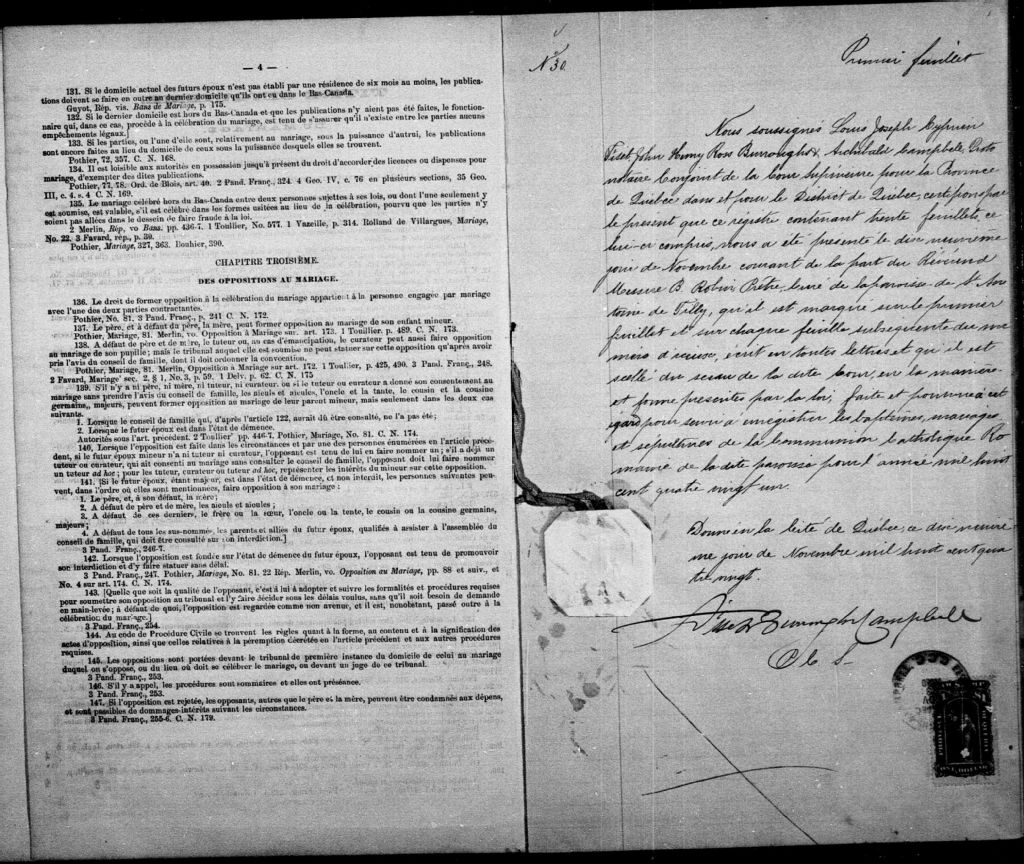 — 4 —
131. Si le domicile actuel des futurs époux n'est pas établi par une résidence de six mois au moins, les publica-
tions doivent se faire en outre au dernier domicile qu'ils ont eu dans le Bas-Canada.
Guyot, Rép. vis. Bans de Mariage, p. 175.
132. Si le dernier domicile est hors du Bas-Canada et que les publications n'y aient pas été faites, le fonction-
naire qui, dans ce cas, procède à la célébration du mariage, est tenu de s'assurer qu'il n'existe entre les parties aucuns
empêchements légaux.]
133. Si les parties, ou l'une d'elle sont, relativement au mariage, sous la puissance d'autrui, les publications
sont encore faites au lieu du domicile de ceux sous la puissance desquels elles se trouvent.
Pothier, 72, 357. C. N. 168.
134. Il est loisible aux autorités en possession jusqu'à présent du droit d'accorder des licences ou dispenses pour
mariage, d'exempter des dites publications.
Pothier, 77, 78. Ord. de Blois, art. 40. 2 Pand. Franç., 324. 4 Geo. IV, c. 76 en plusieurs sections, 35 Geo.
III, c. 4. s. 4 C. N. 169.
135. Le mariage célébré hors du Bas-Canda entre deux personnes sujettes à ses lois, ou dont l'une seulement y
est soumise, est valable, s'il est célébré dans les formes usitées au lieu de la célébration, pourvu que les parties n'y
soient pas allées dans le dessein de faire fraude à la loi.
2 Merlin, Rép. vo Bans. pp. 436-7. 1 Toullier, No. 577. 1 Vazeille, p. 314. Rolland de Villargues, Mariage,
No. 22. 3 Favard, rép., p. 39.
Pothier, Mariage, 327, 363. Bouhier, 390.
CHAPITRE TROISIÈME.
DES OPPOSITIONS AU MARIAGE.
136. Le droit de former opposition à la célébration du mariage appartient à la personne engagée par mariage
avec l'une des deux parties contractantes.
Pothier, No. 81. 3 Pand. Franç., p. 241 C. N. 172.
137. Le père, et à défaut du père, la mère, peut former opposition au mariage de son enfant mineur.
Pothier, Mariage, 81. Merlin, vo. Opposition à Mariage sur art. 173. 1 Toullier, p. 489. C. N. 173.
138. A défaut de père et de mère, le tuteur ou, au cas d'émancipation, le curateur peut aussi faire opposition
au mariage de son pupille; mais le tribunal auquel elle est soumise ne peut statuer sur cette opposition qu'après avoir
pris l'avis du conseil de famille, dont il doit ordonner la convocation.
Pothier, Mariage, 81. Merlin, Opposition à Mariage sur art. 172. 1 Toullier, p. 425, 490. 3 Pand. Franç., 248.
2 Favard, Mariage sec. 2, § 1, No. 3, p. 59. 1 Delv. p. 62. C. N. 175
139. S'il n'y a ni père, ni mère, ni tuteur, ni curateur, ou si le tuteur ou curateur a donné son consentement au
mariage sans prendre l'avis du conseil de famille, les aïeuls et aïeules, l'oncle et la tante, le cousin et la cousine
germains, majeurs, peuvent former opposition au mariage de leur parent mineur, mais seulement dans les deux cas
suivants.
1. Lorsque le conseil de famille qui, d'après l'article 122, aurait dû être consulté, ne l'a pas été;
2. Lorsque le futur époux est dans l'état de démence.
Autorités sous l'art. précédent. 2 Toullier pp. 446-7. Pothier, Mariage, No. 81. C. N. 174.
140. Lorsque l'opposition est faite dans les circonstances et par une des personnes énumérées en l'article précé-
dent, si le futur époux mineur n'a ni tuteur ni curateur, l'opposant est tenu de lui en faire nommer un; s'il a déjà un
tuteur ou curateur, qui ait consenti au mariage sans consulter le conseil de famille, l'opposant doit lui faire nommer
un tuteur ad hoc; pour les tuteur, curateur ou tuteur ad hoc, représenter les intérêts du mineur sur cette opposition.
141. [Si le futur époux, étant majeur, est dans l'état de démence, et non interdit, les personnes suivantes peu-
vent, dans l'ordre où elles sont mentionnées, faire opposition à son mariage:
1. Le père, et, à son défaut, la mère;
2. A défaut de père et de mère, les aïeuls et aïeules;
3. A défaut de ces derniers, le frère ou la sœur, l'oncle ou la tante, le cousin ou la cousine germains,
majeurs;
4. A défaut de tous les sus-nommés, les parents et alliés du futur époux, qualifiés à assister à l'assemblée du
conseil de famille, qui doit être consulté sur son interdiction.]
3 Pand. Franç., 246-7.
142. Lorsque l'opposition est fondée sur l'état de démence du futur époux, l'opposant est tenu de promouvoir
son interdiction et d'y faire statuer sans délai.
3 Pand. Franç., 247. Pothier, Mariage, No. 81. 22 Rép. Merlin, vo. Opposition au Mariage, pp. 88 et suiv., et
No. 4 sur art. 174. C. N. 174.
143. [Quelle que soit la qualité de l'opposant, c'est à lui à adopter et suivre les formalités et procédures requises
pour soumettre son opposition au tribunal et l'y faire décider sous les délais voulus, sans qu'il soit besoin de demande
en main-levée; à défaut de quoi, l'opposition est regardée comme non avenue, et il est, nonobstant, passé outre à la
célébration du mariage.]
3 Pand. Franç., 254.
144. Au code de Procédure Civile se trouvent les règles quant à la forme, au contenu et à la signification des
actes d'opposition, ainsi que celles relatives à la péremption décrétée en l'article précédent et aux autres procédures
requises.
145. Les oppositions sont portées devant le tribunal de première instance du domicile de celui au mariage
duquel on s'oppose, ou du lieu où doit se célébrer le mariage, ou devant un juge de ce tribunal.
3 Pand. Franç., 253.
146. S'il y a appel, les procédures sont sommaires et elles ont préséance.
3 Pand. Franç., 253.
147. Si l'opposition est rejetée, les opposants, autres que le père et la mère, peuvent être condamnés aux dépens,
et sont passibles de dommages-intérêts suivant les circonstances.
3 Pand. Franç., 255-6. C. N. 179.
No 30
Premier feuillet
Nous soussignés Louis Joseph Cyprien
Fiset, John Henry Ross Burroughs & Archibald Campbell, Proto
notaire Conjoint de la Cour Supérieure pour la Province
de Québec dans et pour le District de Québec, certifions par
le présent que ce registre contenant trente feuillets, ce
lui-ci compris, nous a été présenté le dix neuvième
jour de Novembre courant de la part du Révérend
Messire B. Robin, Ptre, Curé de la paroisse de St An
toine de Tilly, qu'il est marqué sur le premier
feuillet et sur chaque feuille subséquente du nu
mero d'icieux, écrit en toutes lettres et qu'il est
scellé du sceau de la dite Cour, en la manière
et forme présentés par la loi, faite et pourvue à cet
égard pour servir à enregistrer les baptêmes, mariages
et sépultures de la Communion Catholique Ro
maine de la dite paroisse pour l'année mil huit
cent quatre vingt un.
Donné en la Cité de Québec, ce dix neuviè
me jour de Novembre mil huit cent qua
tre vingt.
Fiset Burroughs Campbell
P C S
PROVINCE
QUEBEC
ONE DOLLAR